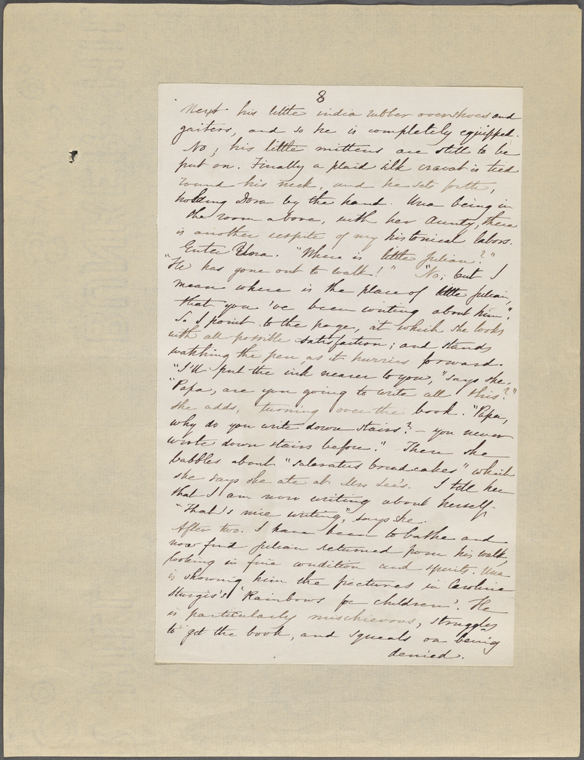 8
Next his little india rubber overshoes and
gaiters, and so he is completely equipped.
No; his little mittens are still to be
put on. Finally a plaid silk cravat is tied
round his neck, and he sets forth,
holding Dora by the hand. Una being in
the room above, with her Aunty, there
is another respite of my historical labors.
Enter Una. "Where is little Julian?"
"He has gone out to walk!" "No; but I
mean where is the place of little Julian,
that you've been writing about him;"
So I point to the page, at which she looks
with all possible satisfaction; and stands
watching the pen, as it hurries forward.
"I'll put the ink nearer to you," says she.
"Papa, are you going to write all this?"
she adds, turning over the book. "Papa,
why do you write down stairs? — you never
wrote down stairs before." Then she
babbles about "salaratus breadcakes" which
she says she ate at Mrs
I tell her
that I am now writing about herself.
"That's nice writing," says she.
After two. I have been to bathe and
now find Julian returned from his walk,
looking in fine condition and spirits. Una
is showing him the pictures in Caroline
Sturgis's 'Rainbows for children'. He
is particularly mischievous, struggles
to get the book, and squeals on being
denied.